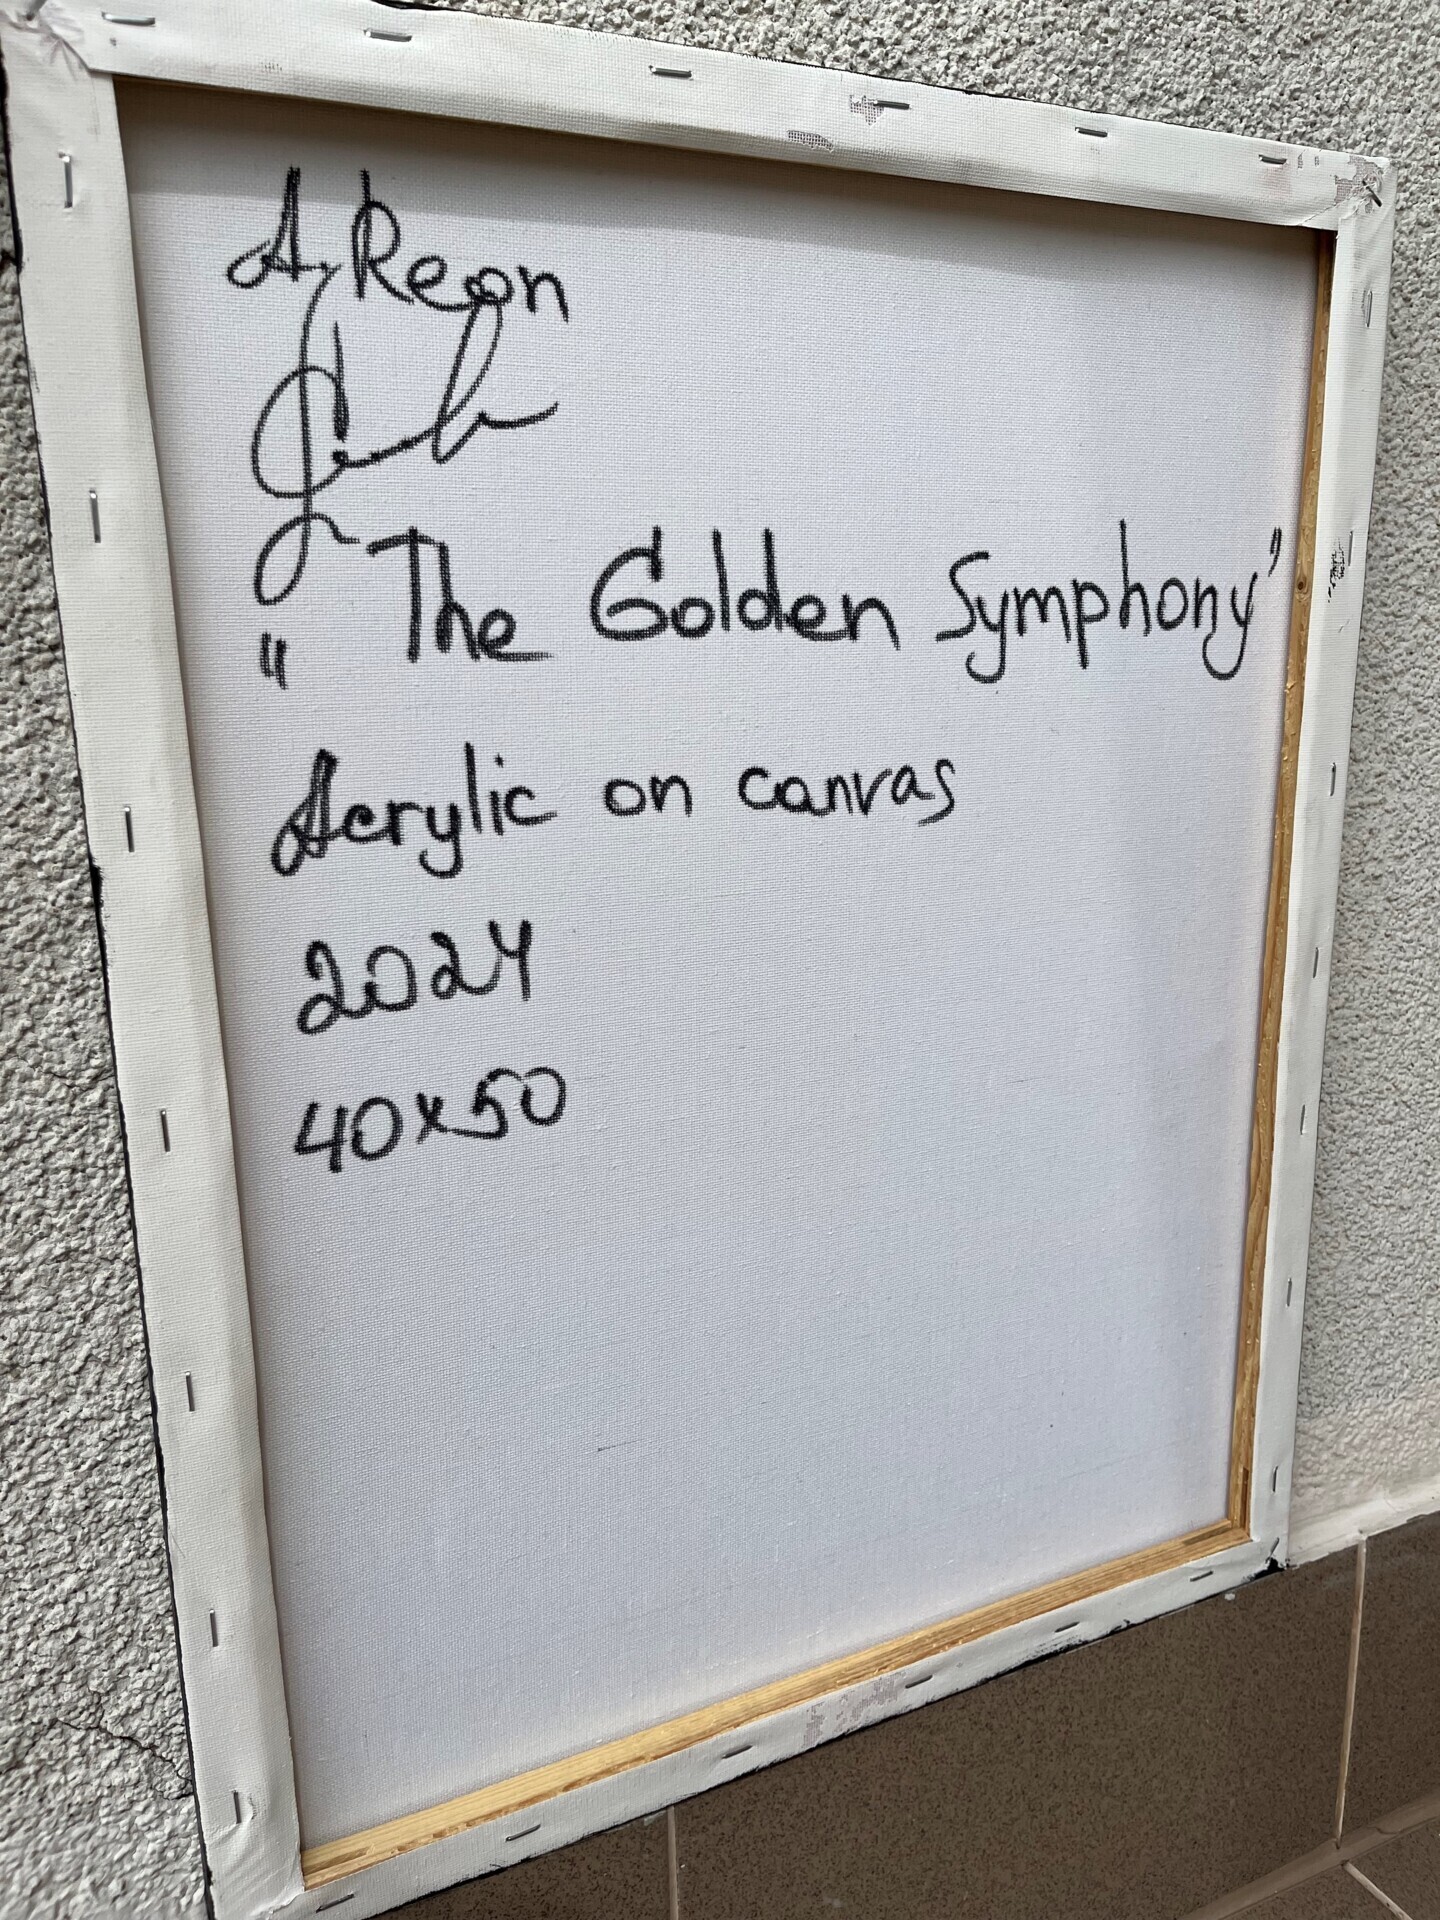 A. Reon
"The Golden Symphony"
Acrylic on canvas
2024
40x50